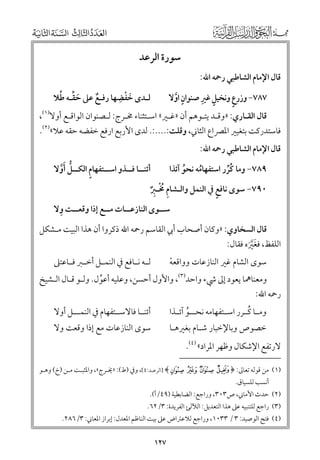 مجلة البحوث والدراسات القرآنية العدد الثالث السنة الثانية
سورة الرعد
قال الإمام الشاطبي رحمه الله:
٧٨٧- وزرعٍ ونخيلٍ غيرِ صنوانٍ اوّلا لــدى خَفْضِـهـا رفـعٌ على حَقّـهُ طُلا
قال القــاري: «وقــد يتــوهــم أن «غيــر» اســتثناء مخـرج: لــصنوان الواقــع أولا(١)،
فاستدركت بتغيير المصراع الثاني، وقلت:....: لدى الأربع ارفع خفضه حقه علا»(٢).
قال الإمام الشاطبي رحمه الله:
٧٨٩- وما كُرّر استفهامُه نحوُ آئذا أئنــا فــذو استــفهامٍ الكــلُّ أوَّلا
٧٩٠- سوى نافعٍ في النمل والــشامِ مُخْبِرٌ ســوى النازعــات مــع إذا وقعــت وِلا
قال السخاوي: «وكان أصحاب أبي القاسم رحمه الله ذكروا أن هذا البيت مــشكل
اللفظ، فغيَّره فقال:
سوى الشام غير النازعات وواقعة لــه نــافع في النمــل أخــبر فــاعتلى
ومعناهما يعود إلى شيء واحد(٣)، والأول أحسن، وعليه أعوِّل. ولــو قــال الــشيخ
رحمه الله:
ومــا كُــرر استــفهامه نحــوُ آئــذا أئنــا فالاســتفهام في النمــل أولا
خصوص وبالإخبار شــام بغيرهــا سوى النازعات مع إذا وقعت ولا
لارتفع الإشكال وظهر المراد»(٤).
(١) من قوله تعالى: ﴿ وَنَخِيلٌ صِنْوَانٌ وَغَيْرُ صِنْوَانٍ ﴾ [الرعد:٤]، وفي (ط): «يخــرج»، والمثبــت مــن (ح) وهــو
أنسب للسياق.
(٢) حدث الأماني، ص٣٠٣، وراجع: الضابطية (٤٩/أ).
(٣) راجع للتنبيه على هذا التعديل: اللآلئ الفريدة: ٣/ ٦٢.
(٤) فتح الوصيد: ٣/ ١٠٣٣، وراجع للاعتراض على بيت الناظم المعدل: إبراز المعاني: ٣/ ٢٨٦.
١٢٧